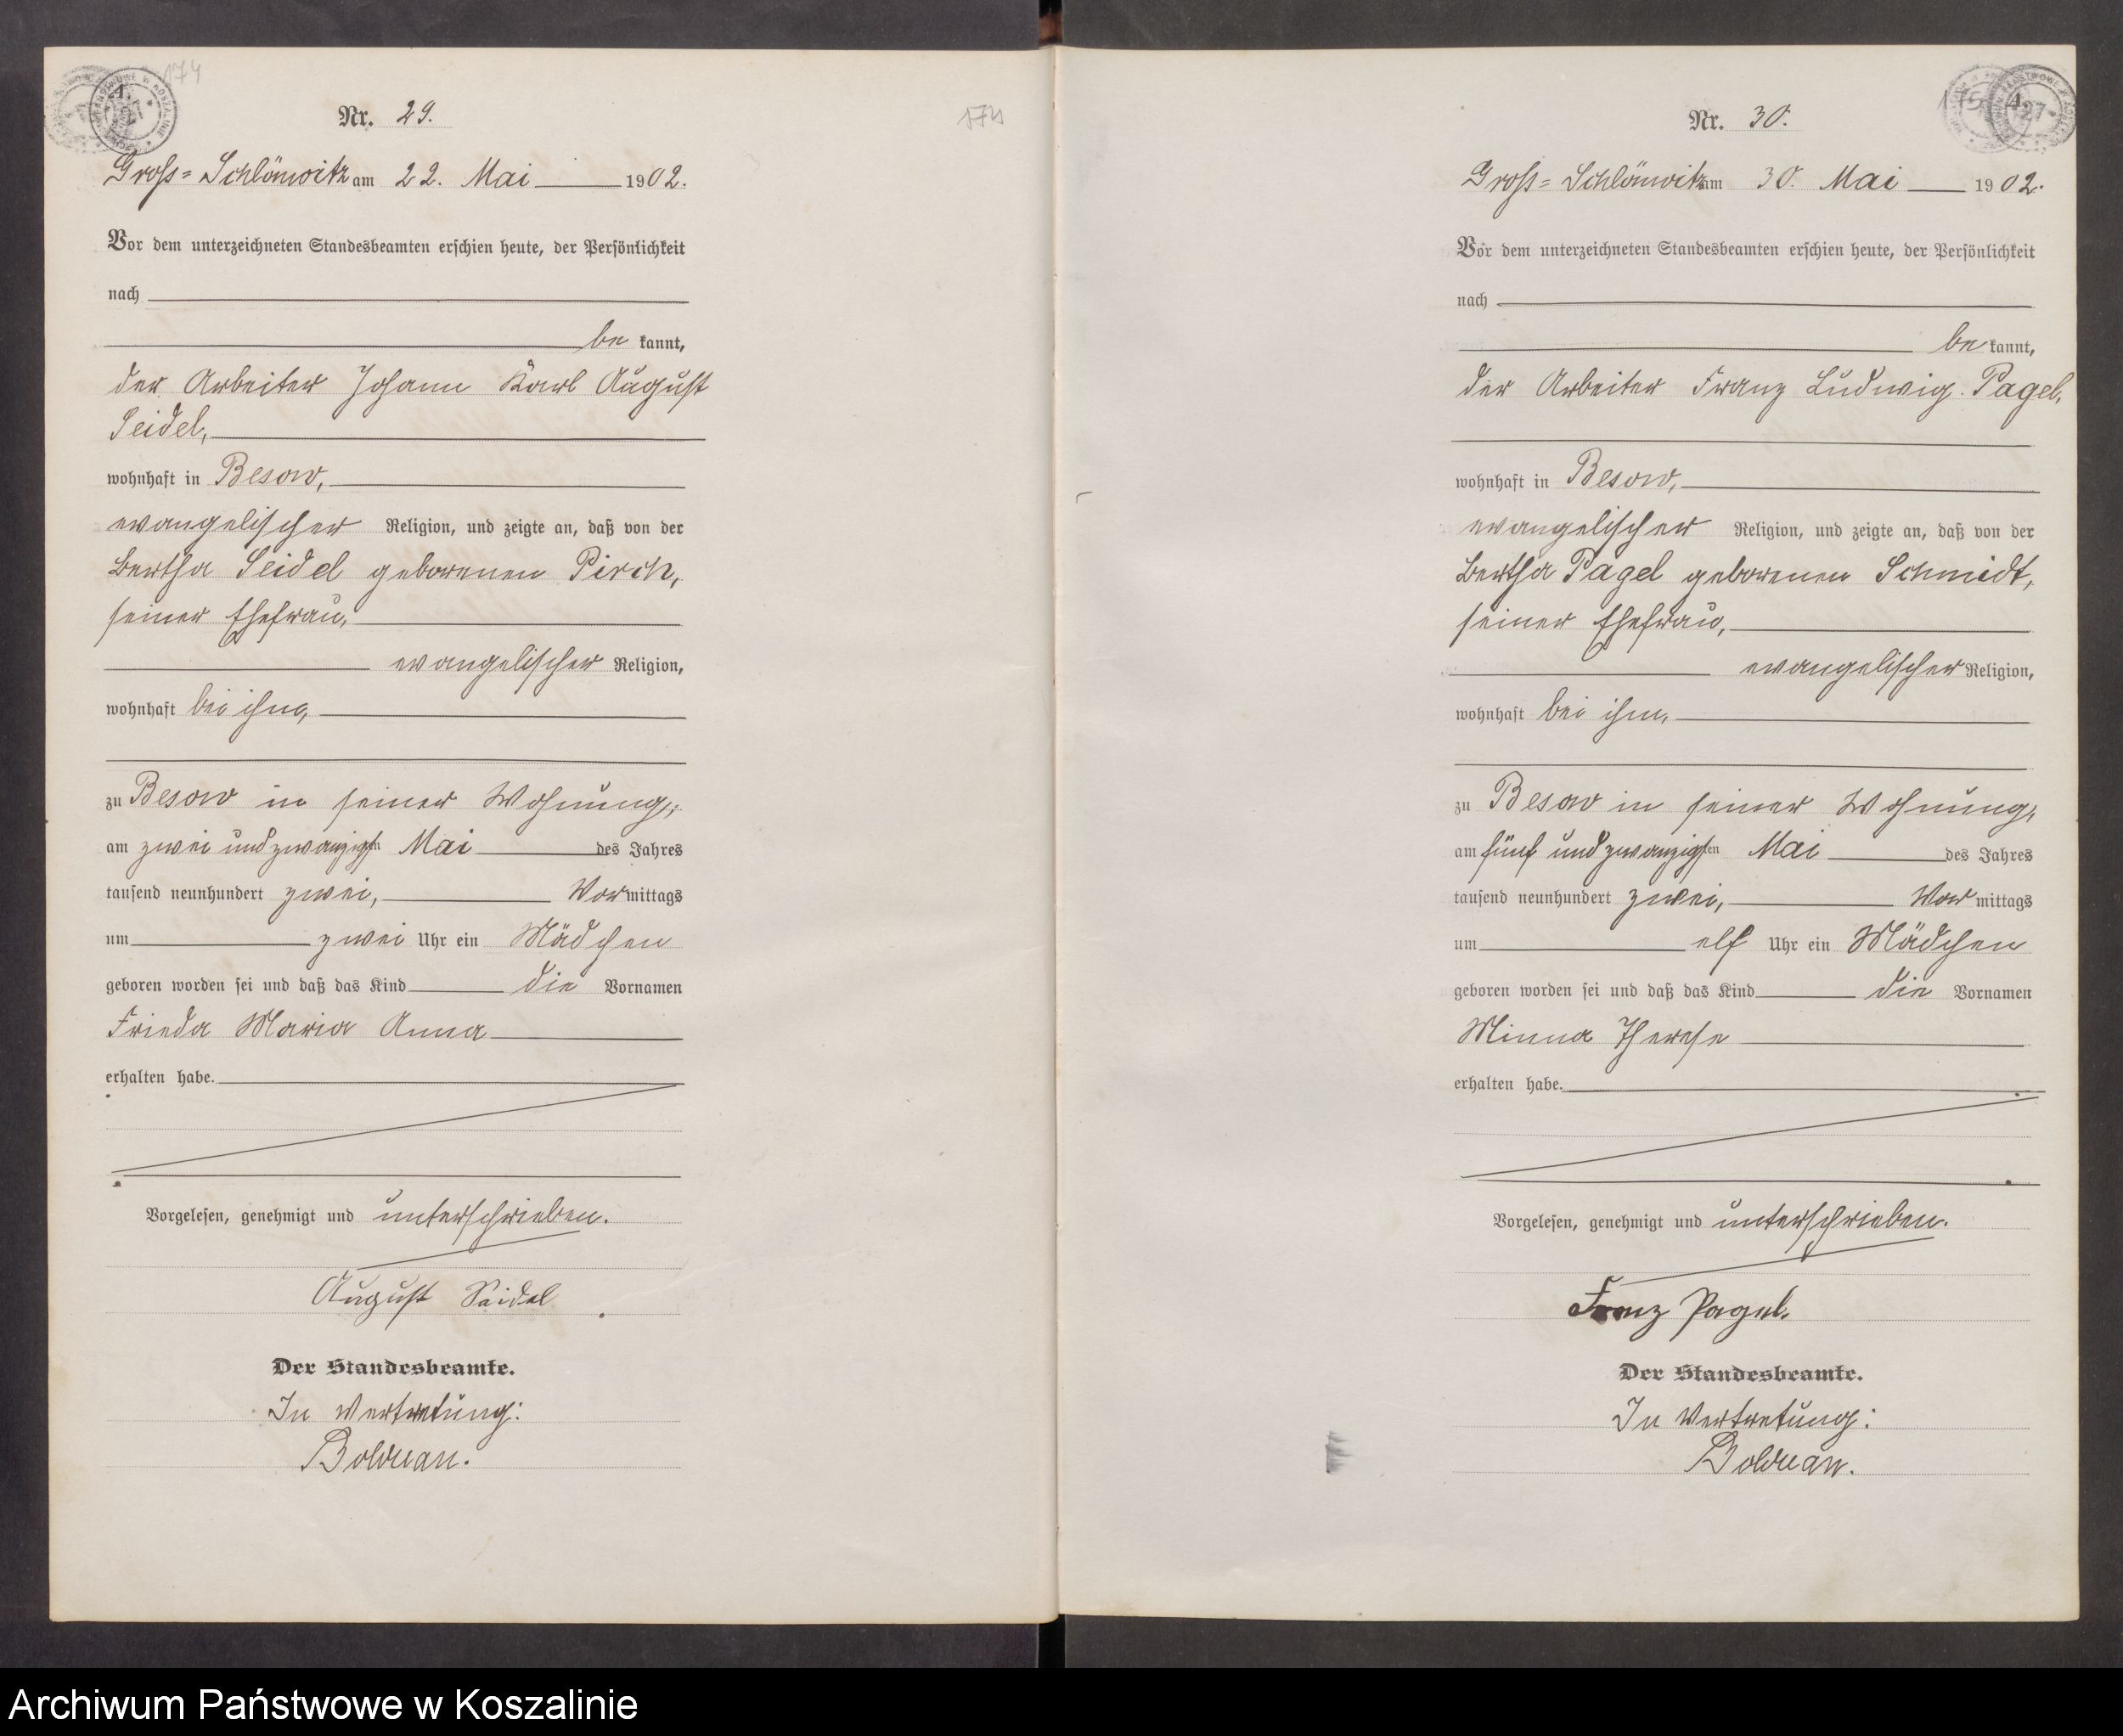 174
Nr. 29.
Groß-Schlönwitz am 22. Mai 1902.
Vor dem unterzeichneten Standesbeamten erschien heute, der Persönlichkeit
nach
be kannt,
der Arbeiter Johann Karl August
Seidel,
wohnhaft in Besow,
evangelischer Religion, und zeigte an, daß von der
Bertha Seidel geborenen Pirch,
seiner Ehefrau,
evangelischer Religion,
wohnhaft bei ihm,
zu Besow in seiner Wohnung,
am zwei und zwanzigsten Mai des Jahres
tausend neunhundert zwei, Vor mittags
um zwei Uhr ein Mädchen
geboren worden sei und daß das Kind die Vornamen
Frieda Maria Anna
erhalten habe.
Vorgelesen, genehmigt und unterschrieben.
August Seidel
Der Standesbeamte.
In Vertretung:
Bolduan.
174
175
Nr. 30.
Groß-Schlönwitz am 30. Mai 1902.
Vor dem unterzeichneten Standesbeamten erschien heute, der Persönlichkeit
nach
be kannt,
der Arbeiter Franz Ludwig Pagel,
wohnhaft in Besow,
evangelischer Religion, und zeigte an, daß von der
Bertha Pagel geborenen Schmidt,
seiner Ehefrau,
evangelischer Religion,
wohnhaft bei ihm,
zu Besow in seiner Wohnung,
am fünf und zwanzigsten Mai des Jahres
tausend neunhundert zwei, Vor mittags
um elf Uhr ein Mädchen
geboren worden sei und daß das Kind die Vornamen
Minna Therese
erhalten habe.
Vorgelesen, genehmigt und unterschrieben.
Franz Pagel.
Der Standesbeamte.
In Vertretung:
Bolduan.
Archiwum Państwowe w Koszalinie